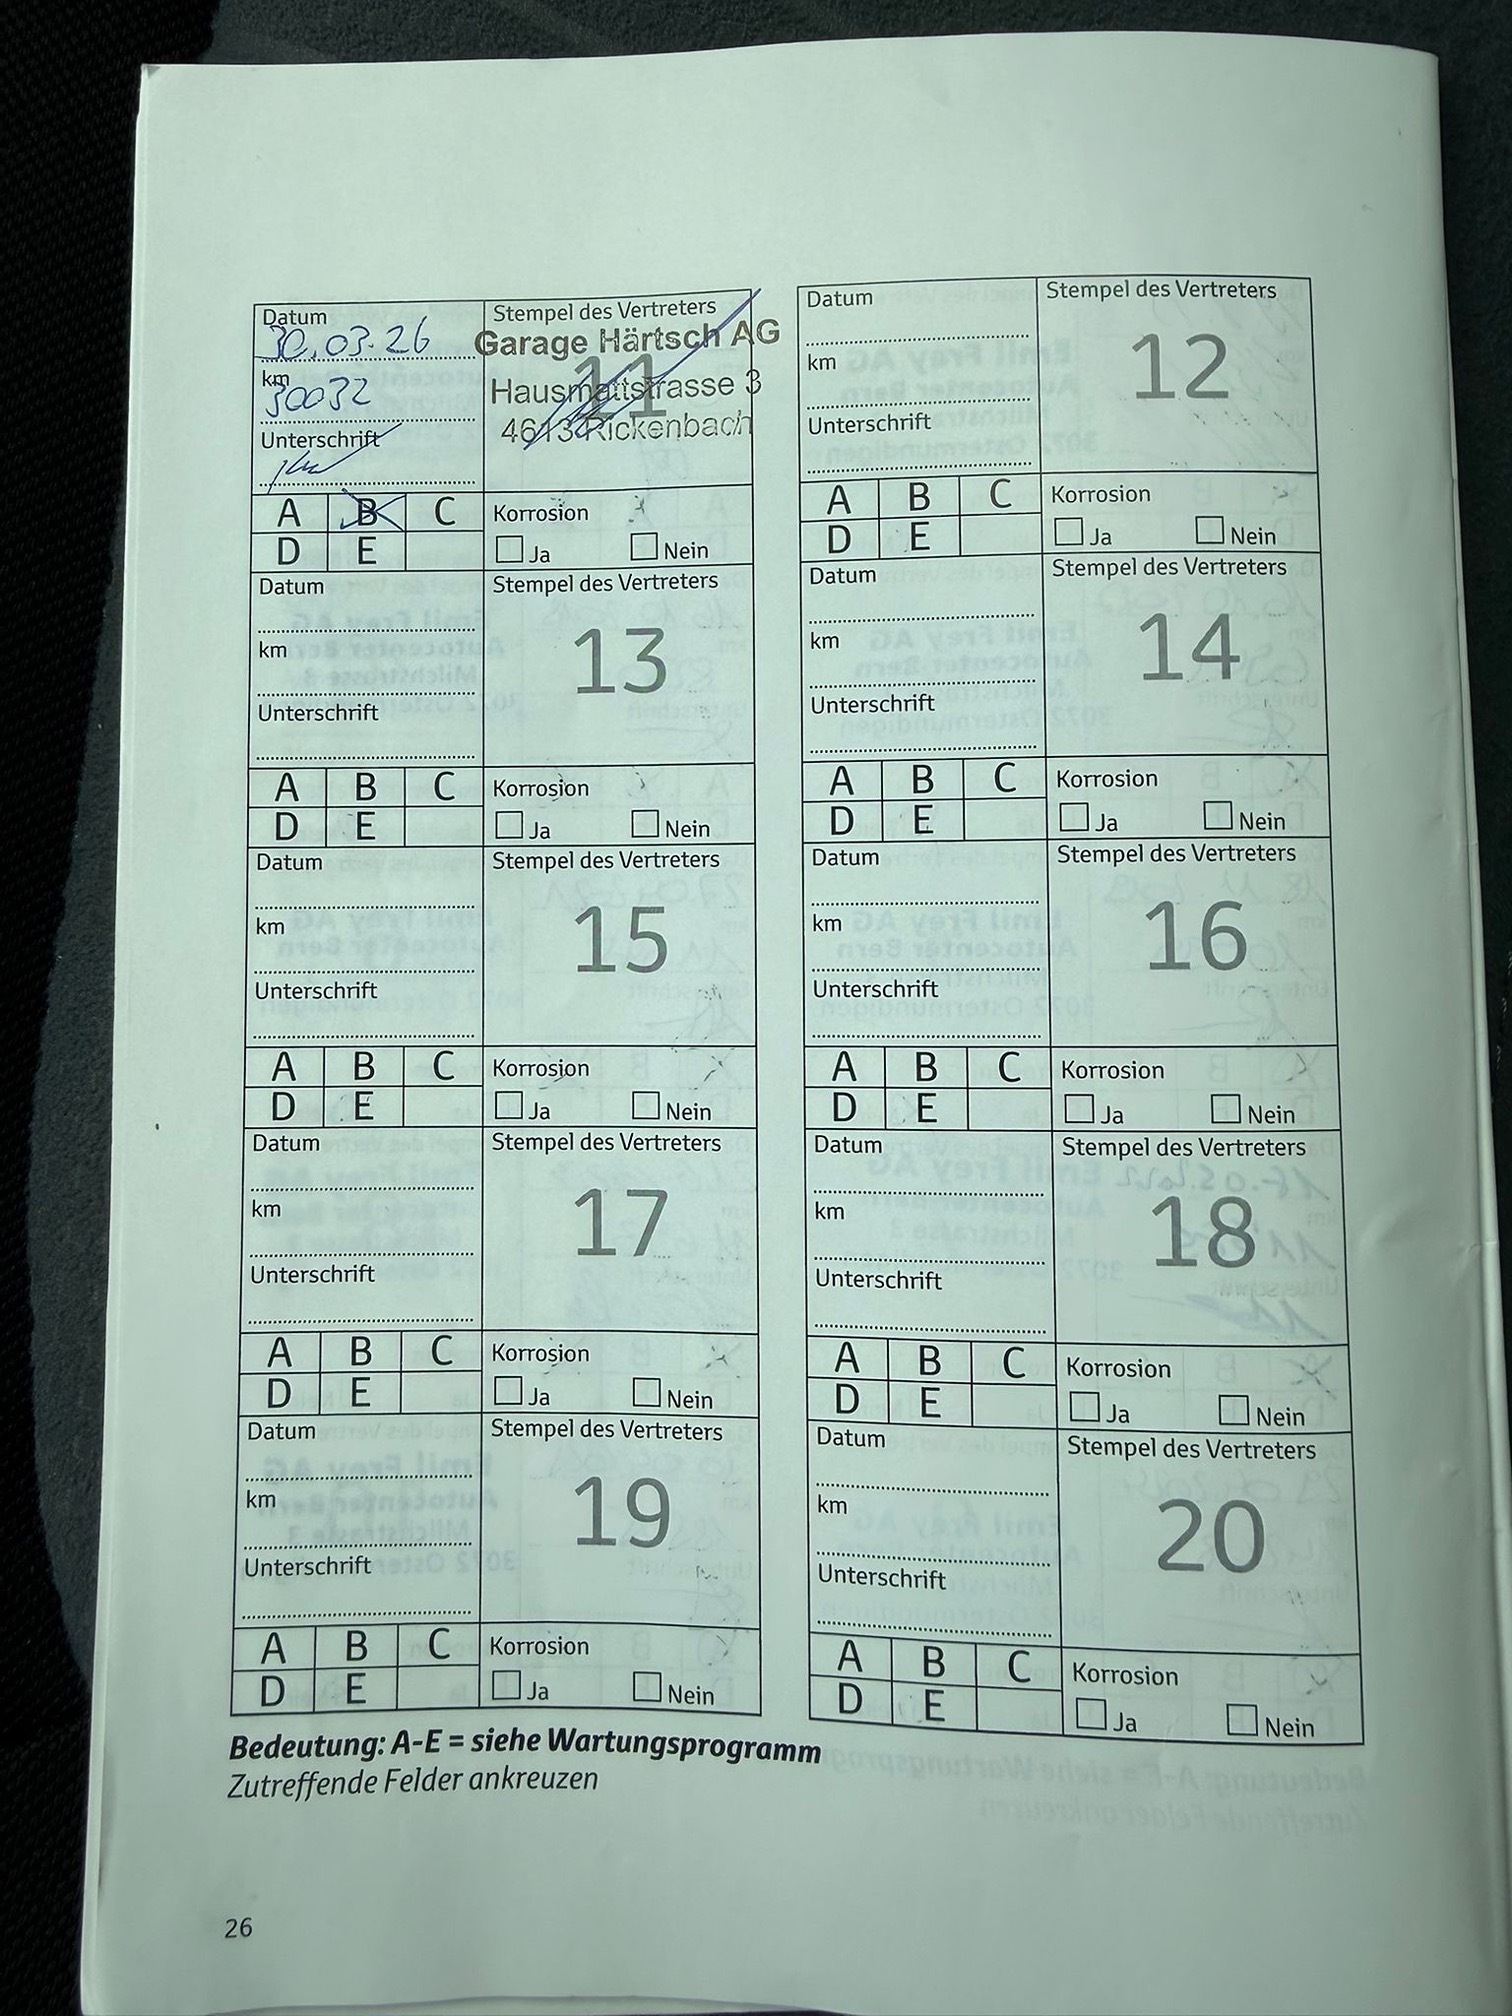 Datum
30.03.26
km
30032
Unterschrift
Stempel des Vertreters
11
Garage Härtsch AG
Hausmattstrasse 3
4613 Rickenbach
A B C
D E
Korrosion
Ja Nein
Datum
km
Unterschrift
Stempel des Vertreters
12
A B C
D E
Korrosion
Ja Nein
Datum
km
Unterschrift
Stempel des Vertreters
13
A B C
D E
Korrosion
Ja Nein
Datum
km
Unterschrift
Stempel des Vertreters
14
A B C
D E
Korrosion
Ja Nein
Datum
km
Unterschrift
Stempel des Vertreters
15
A B C
D E
Korrosion
Ja Nein
Datum
km
Unterschrift
Stempel des Vertreters
16
A B C
D E
Korrosion
Ja Nein
Datum
km
Unterschrift
Stempel des Vertreters
17
A B C
D E
Korrosion
Ja Nein
Datum
km
Unterschrift
Stempel des Vertreters
18
A B C
D E
Korrosion
Ja Nein
Datum
km
Unterschrift
Stempel des Vertreters
19
A B C
D E
Korrosion
Ja Nein
Datum
km
Unterschrift
Stempel des Vertreters
20
A B C
D E
Korrosion
Ja Nein
Bedeutung: A-E = siehe Wartungsprogramm
Zutreffende Felder ankreuzen
26